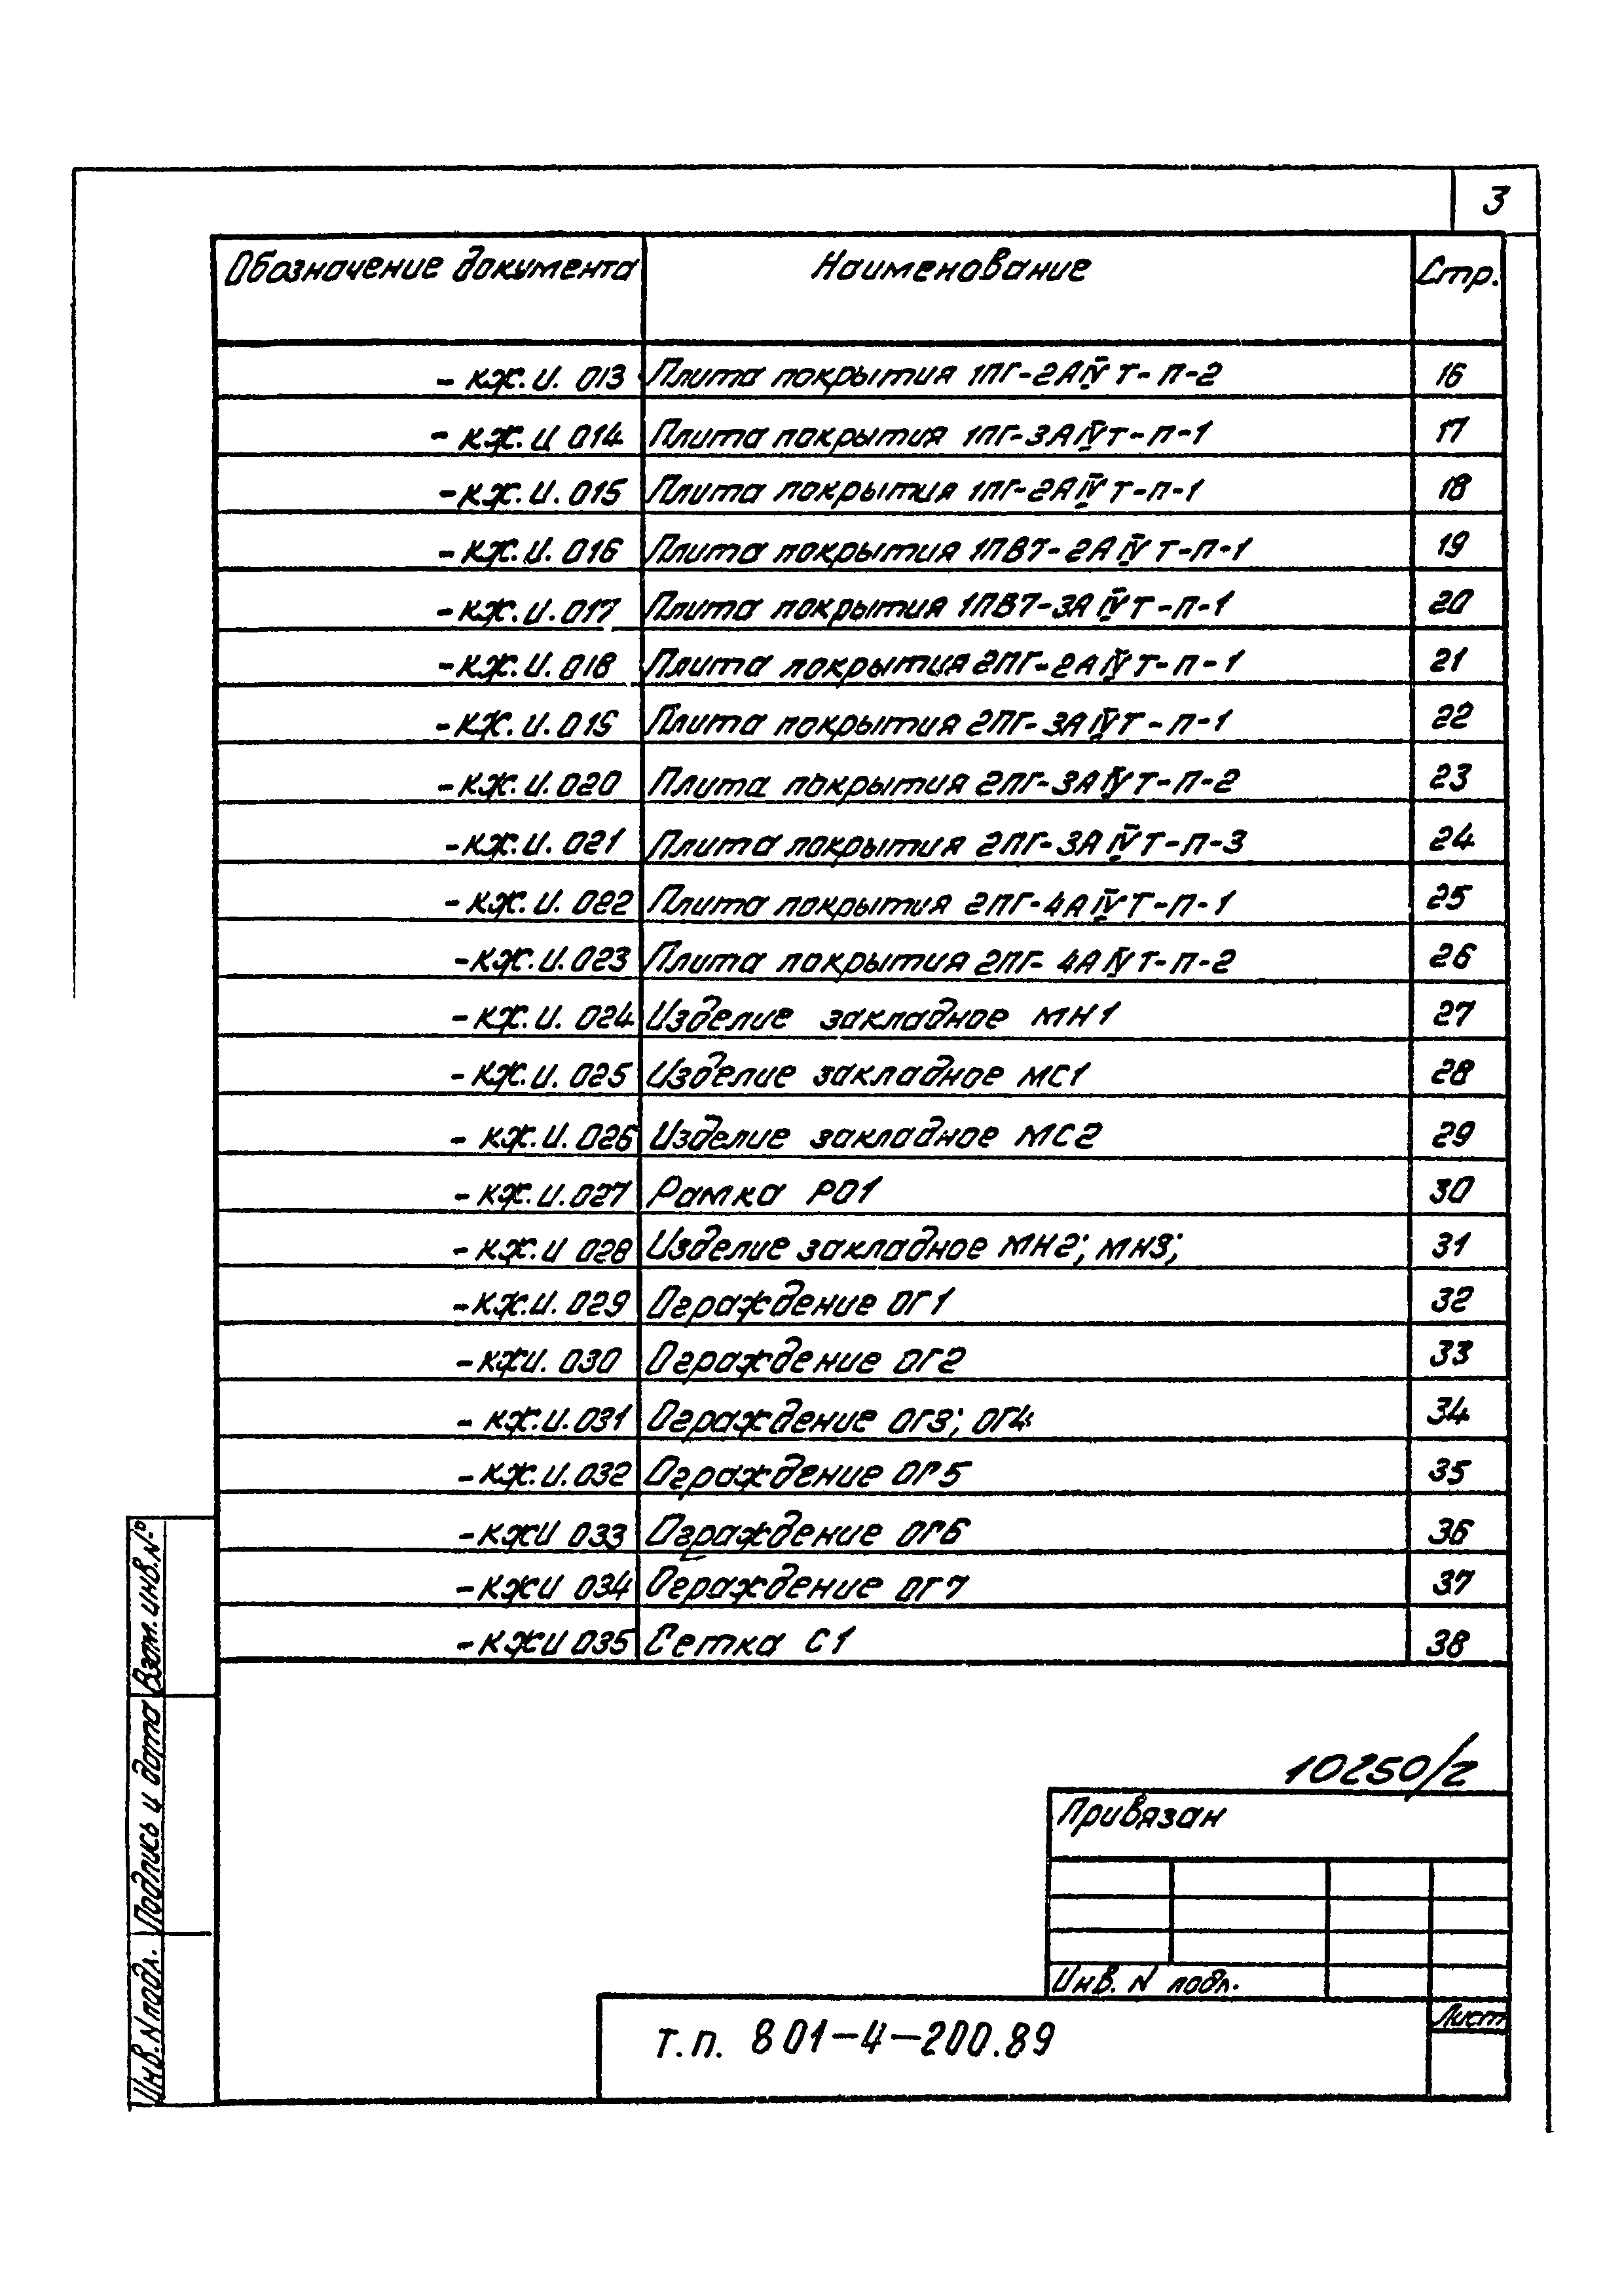 3
Обозначение документа Наименование Стр.
- КЖ.И. 013 Плита покрытия 1ПГ-2АIVТ-П-2 16
- КЖ.И 014 Плита покрытия 1ПГ-3АIVТ-П-1 17
- КЖ.И. 015 Плита покрытия 1ПГ-2АIVТ-П-1 18
- КЖ.И. 016 Плита покрытия 1ПВ7-2АIVТ-П-1 19
- КЖ.И. 017 Плита покрытия 1ПВ7-3АIVТ-П-1 20
- КЖ.И. 018 Плита покрытия 2ПГ-2АIVТ-П-1 21
- КЖ.И. 019 Плита покрытия 2ПГ-3АIVТ-П-1 22
- КЖ.И. 020 Плита покрытия 2ПГ-3АIVТ-П-2 23
- КЖ.И. 021 Плита покрытия 2ПГ-3АIVТ-П-3 24
- КЖ.И. 022 Плита покрытия 2ПГ-4АIVТ-П-1 25
- КЖ.И. 023 Плита покрытия 2ПГ-4АIVТ-П-2 26
- КЖ.И. 024 Изделие закладное МН1 27
- КЖ.И. 025 Изделие закладное МС1 28
- КЖ.И. 026 Изделие закладное МС2 29
- КЖ.И. 027 Рамка РО1 30
- КЖ.И 028 Изделие закладное МН2; МН3; 31
- КЖ.И. 029 Ограждение ОГ1 32
- КЖИ. 030 Ограждение ОГ2 33
- КЖ.И. 031 Ограждение ОГ3; ОГ4 34
- КЖ.И. 032 Ограждение ОГ5 35
- КЖИ 033 Ограждение ОГ6 36
- КЖИ 034 Ограждение ОГ7 37
- КЖИ 035 Сетка С1 38
Взам. инв. №
Подпись и дата
Инв. N подл.
10250/2
Привязан
Инв. N подл.
Т.П. 801-4-200.89
Лист